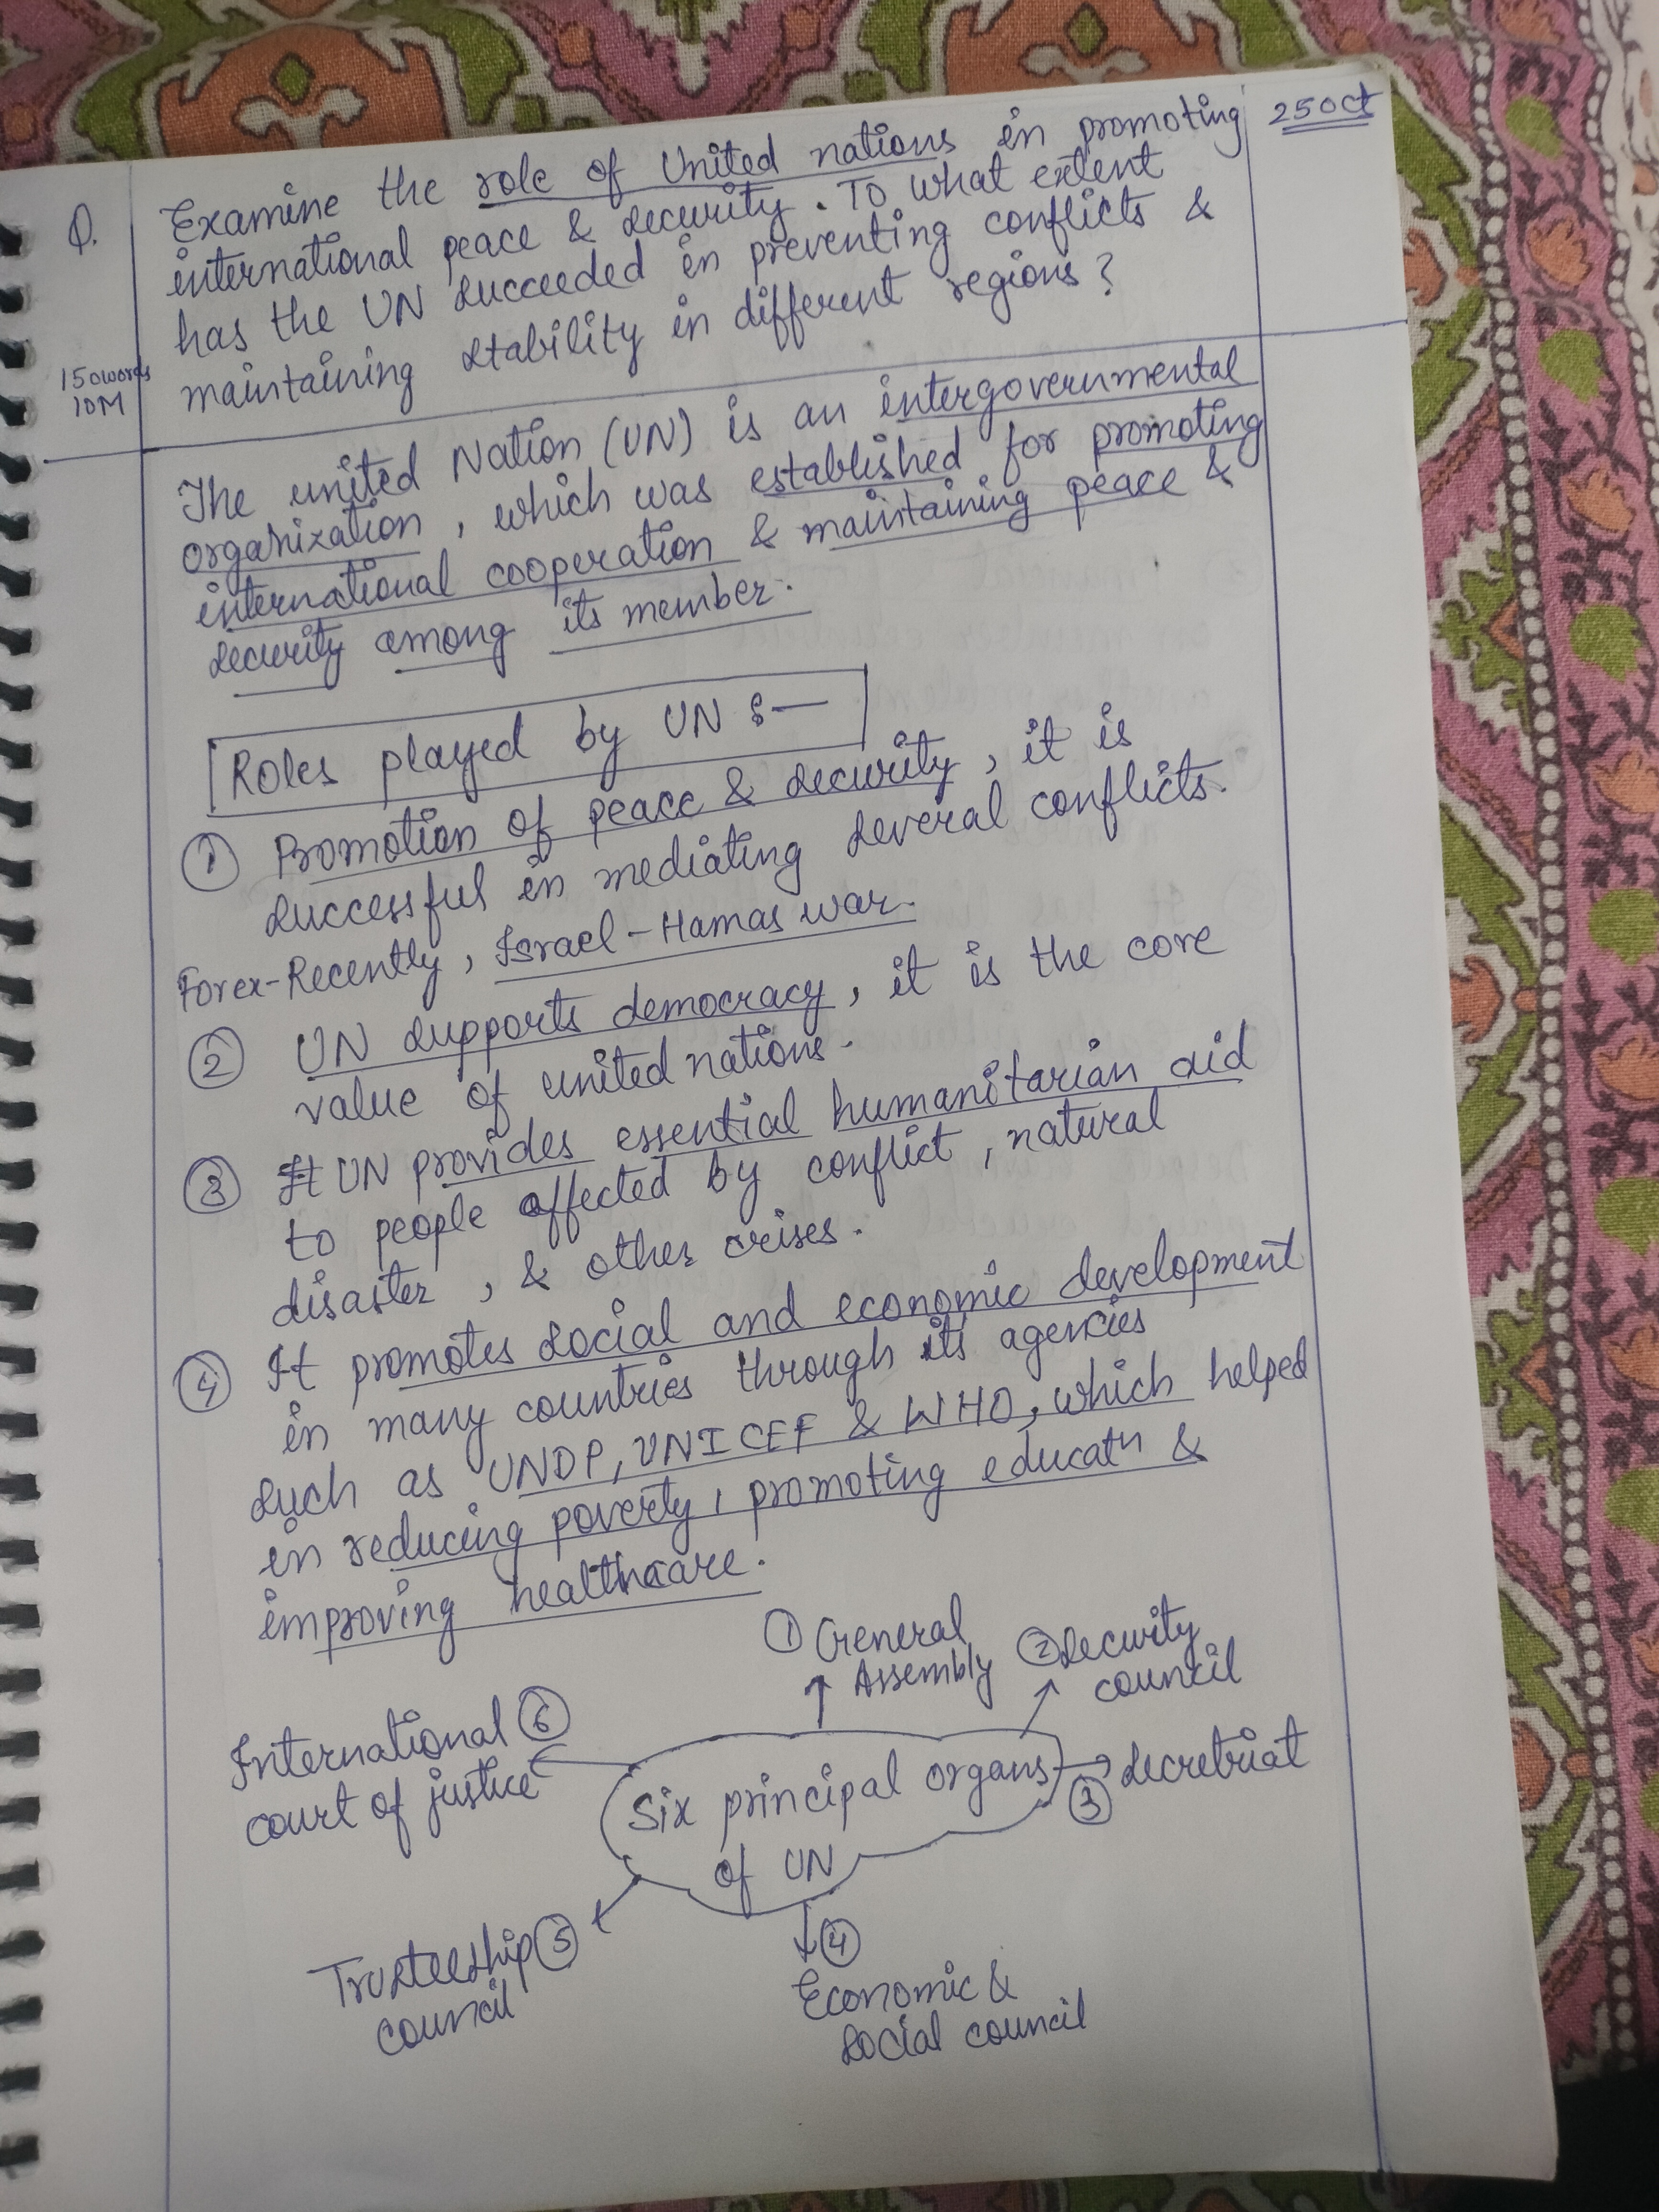 25 Oct
Q. Examine the role of United nations in promoting
international peace & security. To what extent
has the UN succeeded in preventing conflicts &
maintaining stability in different regions?
150words
10M
The united Nation (UN) is an intergovernmental
organization, which was established for promoting
international cooperation & maintaining peace &
security among its member.
Roles played by UN :—
① Promotion of peace & security, it is
successful in mediating several conflicts.
Forex-Recently, Israel-Hamas war.
② UN supports democracy, it is the core
value of united nations.
③ UN provides essential humanitarian aid
to people affected by conflict, natural
disaster, & other crises.
④ It promotes social and economic development
in many countries through its agencies
such as UNDP, UNICEF & WHO, which helped
in reducing poverty, promoting educatn &
improving healthcare.
Six principal organs
of UN
① General
Assembly
② Security
council
③ Secretriat
④
Economic &
social council
Trusteeship ⑤
council
International ⑥
court of justice